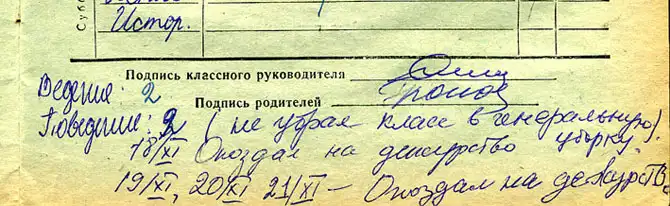 Субб
Истор.
Подпись классного руководителя
Ведение: 2 Подпись родителей
Поведение: 2 (не убрал класс в генеральную уборку).
18/XI Опоздал на дежурство
19/XI, 20/XI 21/XI – Опоздал на дежурств